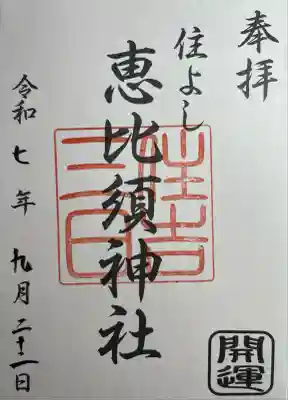 奉拝
住よし
恵比須神社
令和七年九月二十一日
開運